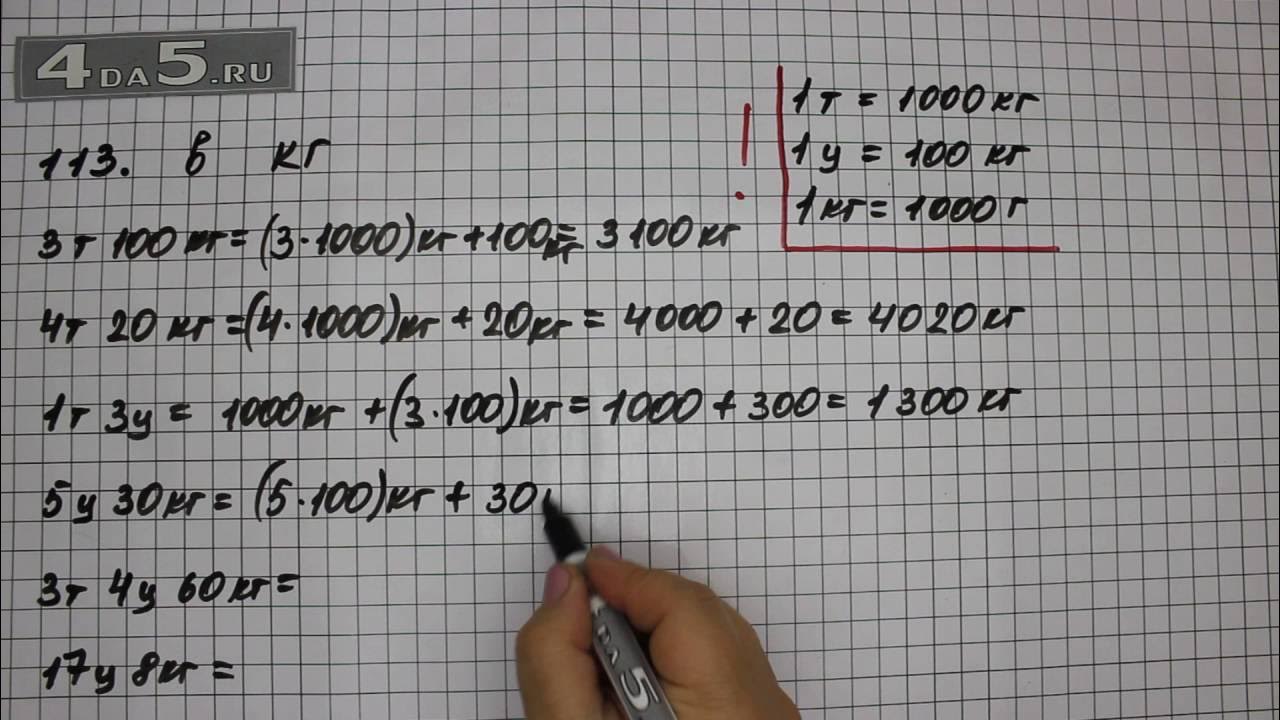 4DA5.RU
113. в кг
1т = 1000 кг
1ц = 100 кг
1кг = 1000 г
!
3т 100 кг = (3·1000)кг + 100кг = 3 100 кг
4т 20 кг = (4·1000)кг + 20кг = 4000 + 20 = 4020 кг
1т 3ц = 1000кг + (3·100)кг = 1000 + 300 = 1 300 кг
5ц 30кг = (5·100)кг + 30
3т 4ц 60кг =
17ц 8кг =
DA 5